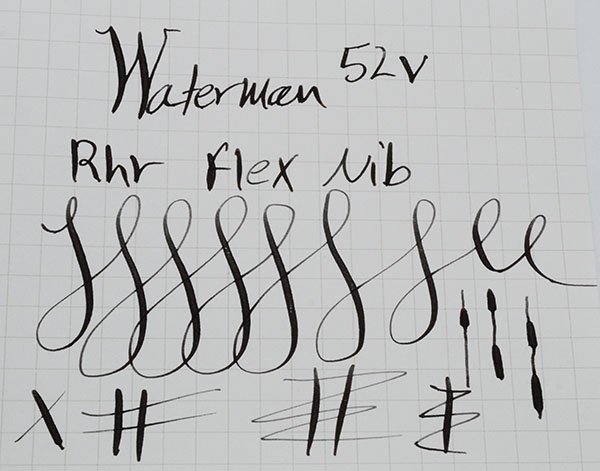 Waterman 52V
Rhr Flex Nib